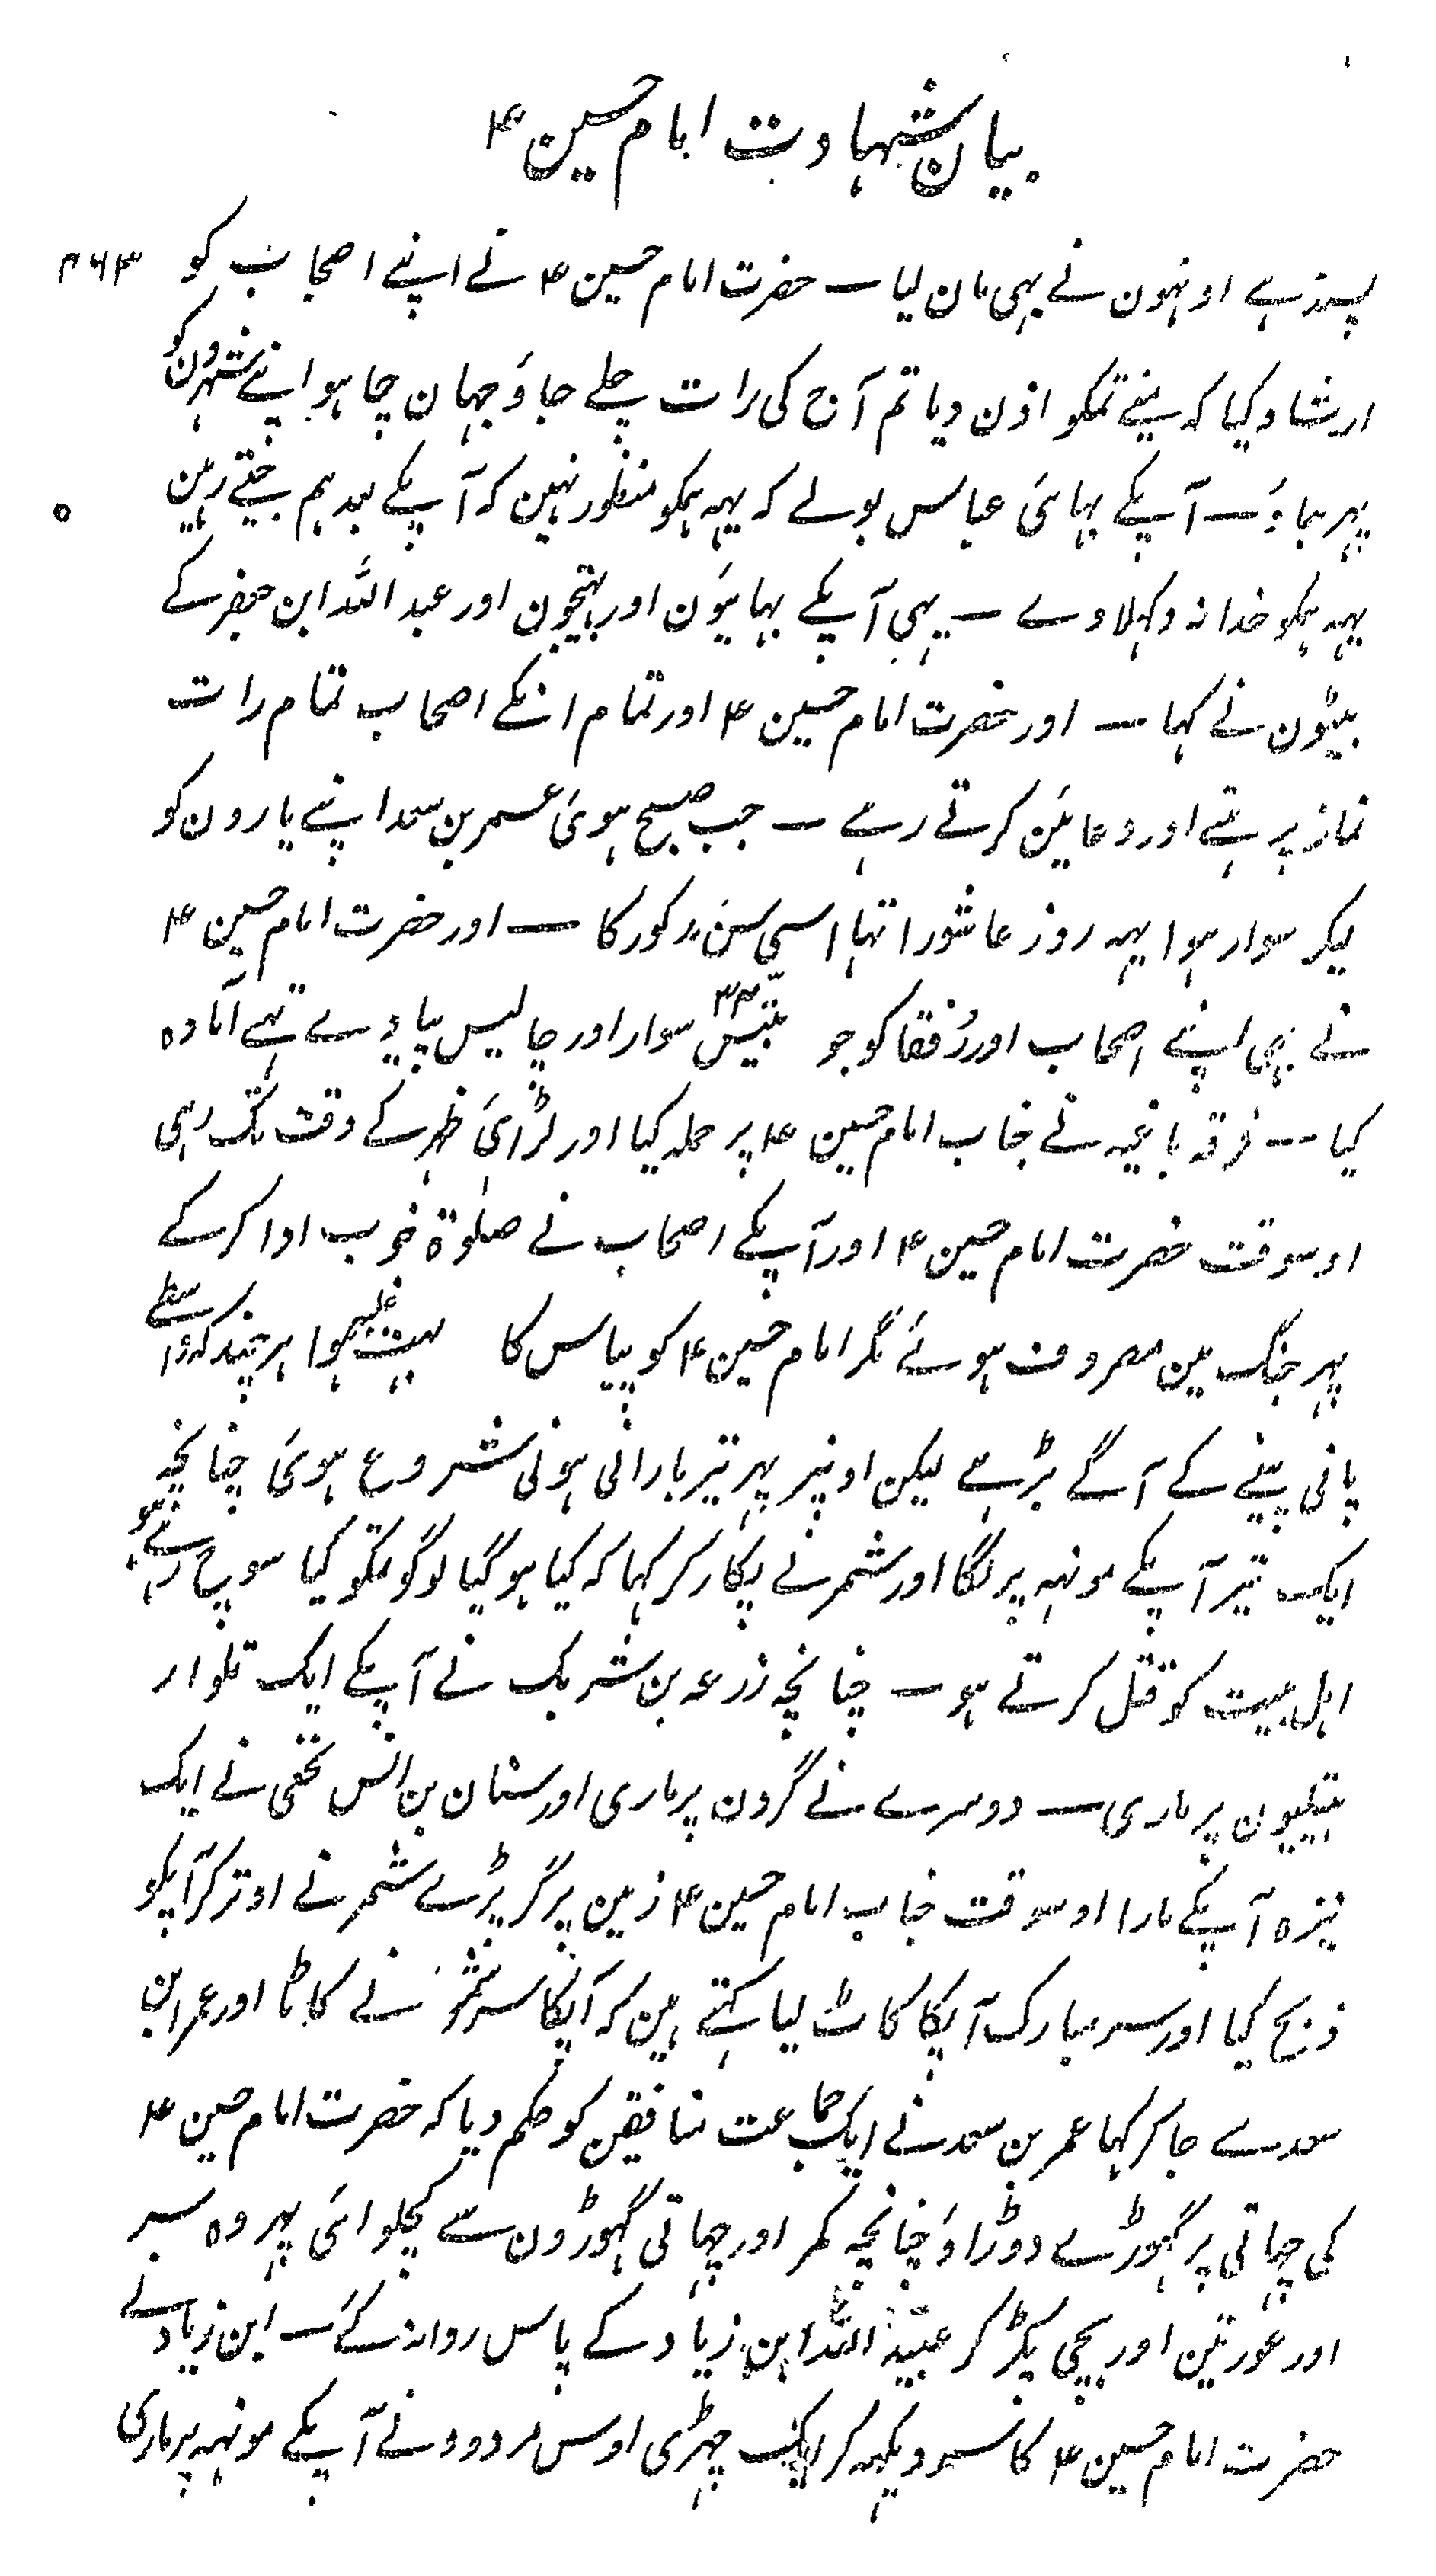 بیان شہادت امام حسین ۴
پسند ہے اونہون نے بہی مان لیا — حضرت امام حسین ۴ نے اپنے اصحاب کو
ارشاد کیا کہ مینے تمکو اذن دیا تم آج کی رات چلے جاؤ جہان چاہو اپنے شہرون کو
پہر جاؤ — آپکے بہائی عباس بولے کہ یہہ ہمکو منظور نہین کہ آپکے بعد ہم جیتے رہین
یہہ ہمکو خدا نہ دکہلاوے — یہی آپکے بہائیون اور بہتیجون اور عبد اللہ ابن جعفر کے
بیٹون نے کہا — اور حضرت امام حسین ۴ اور تمام انکے اصحاب تمام رات
نماز پڑہتے اور دعائین کرتے رہے — جب صبح ہوئی عمر بن سعد اپنے یارون کو
لیکر سوار ہوا یہہ روز عاشورا تہا اسی سن مذکور کا — اور حضرت امام حسین ۴
نے بہی اپنے اصحاب اور رُفقا کو جو ۳۲ بتیس سوار اور چالیس پیادے تہے آمادہ
کیا — فرقہ باغیہ نے جناب امام حسین ۴ پر حملہ کیا اور لڑائی ظہر کے وقت تک رہی
اوسوقت حضرت امام حسین ۴ اور آپکے اصحاب نے صلوٰۃ خوب ادا کر کے
پہر جنگ مین مصروف ہوئے مگر امام حسین ۴ کو پیاس کا بہت غلبہ ہوا ہر چند کہ واسطے
پانی پینے کے آگے بڑہے لیکن اونپر پہر تیر بارانی ہونی شروع ہوئی چنانچہ
ایک تیر آپکے مونہہ پر لگا اور شمر نے پکار کر کہا کہ کیا ہو گیا لوگو تمکو کیا سوچ رہے ہو
اہل بیت کو قتل کرتے ہو — چنانچہ زرعہ بن شریک نے آپکے ایک تلوار
ہتیلیون پر ماری — دوسرے نے گردن پر ماری اور سنان بن انس نخعی نے ایک
نیزہ آپکے مارا اوسوقت جناب امام حسین ۴ زمین پر گر پڑے شمر نے اوتر کر آپکو
ذبح کیا اور سر مبارک آپکا کاٹ لیا کہتے ہین کہ آپکا سر شمر نے کاٹا اور عمر ابن
سعد سے جا کر کہا عمر بن سعد نے ایک جماعت منافقین کو حکم دیا کہ حضرت امام حسین ۴
کی چہاتی پر گہوڑے دوڑاؤ چنانچہ کمر اور چہاتی گہوڑون سے کچلوائی پہر وہ سر
اور عورتین اور بچی پکڑ کر عبید اللہ ابن زیاد کے پاس روانہ کئے — ابن زیاد نے
حضرت امام حسین ۴ کا سر دیکہہ کر ایک چہڑی اوس مردود نے آپکے مونہہ پر ماری